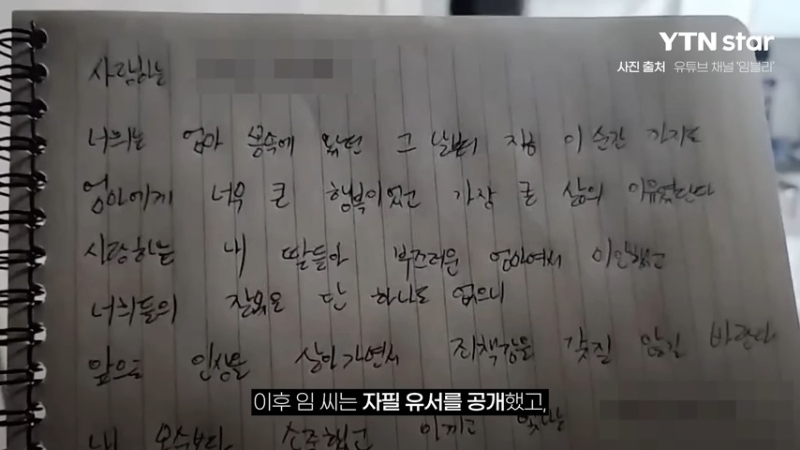 YTN star
사진 출처 유튜브 채널 '임블리'
사랑하는
너희는 엄마 뱃속에 왔던 그 날부터 지금 이 순간 까지도
엄마에게 너무 큰 행복이었고 가장 큰 삶의 이유였단다
사랑하는 내 딸들아 부끄러운 엄마여서 미안했고
너희들의 잘못은 단 하나도 없으니
앞으로 인생을 살아가면서 죄책감을 갖질 않길 바란다
이후 임 씨는 자필 유서를 공개했고,
내 소중했고 아끼고